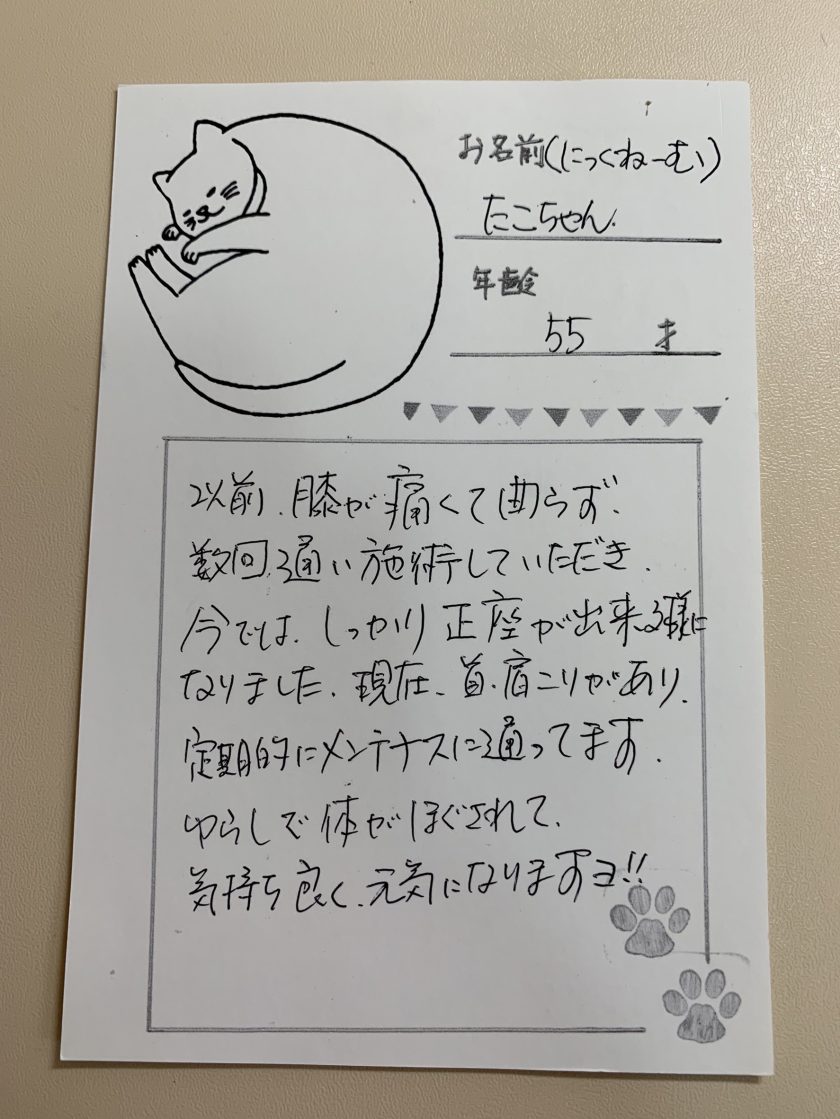 お名前(にっくねーむ)
たこちゃん.
年齢
55 才
以前、膝が痛くて曲らず、
数回通い施術していただき、
今では、しっかり正座が出来る様に
なりました、現在、首、肩こりがあり、
定期的にメンテナスに通ってます、
ゆらしで体がほぐされて、
気持ち良く、元気になりますヨ!!